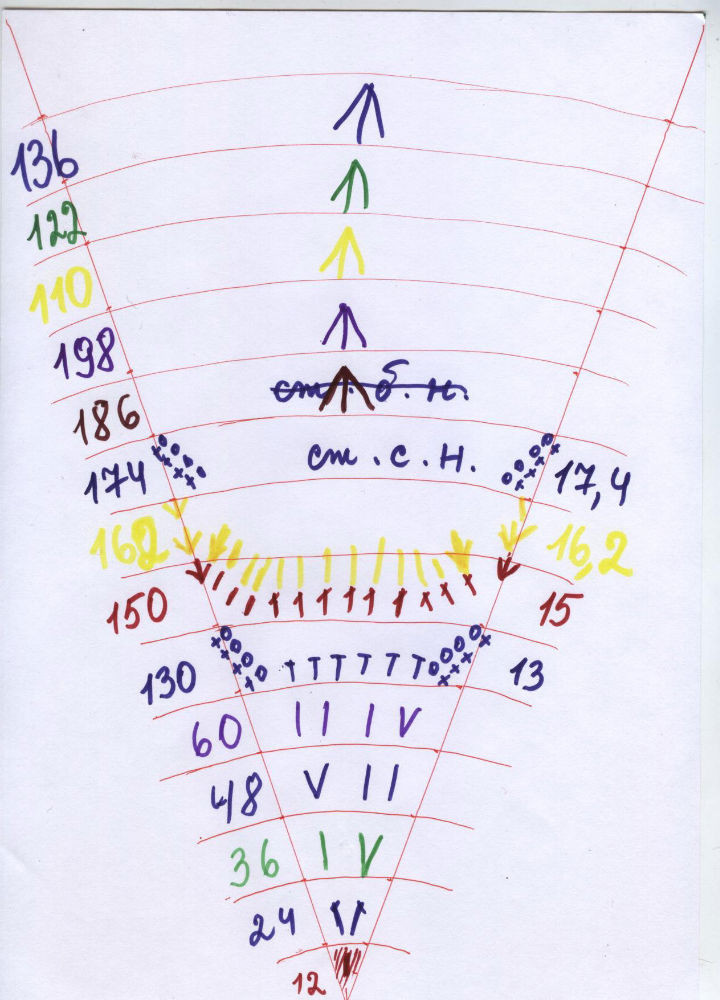 136
122
110
198
186 ст. б. н.
174 ст. с. н. 17,4
162 16,2
150 15
130 13
60
48
36
24
12